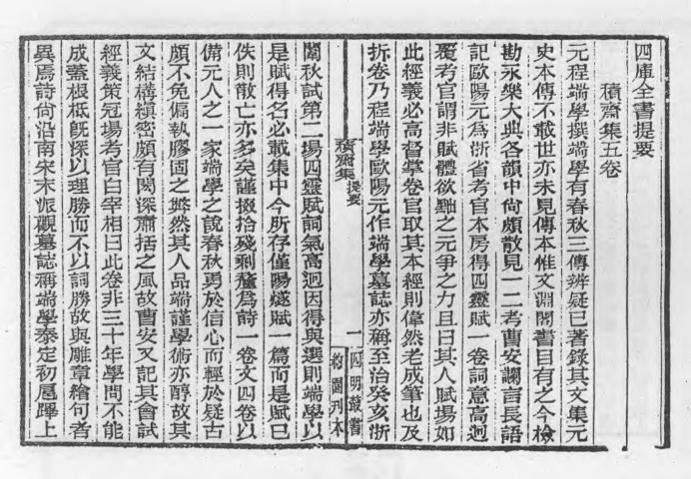 四庫全書提要
積齋集五卷
元程端學撰端學有春秋三傳辨疑已著錄其文集元
史本傳不載世亦未見傳本惟文淵閣書目有之今檢
勘永樂大典各韻中尚頗散見一二考曹安讕言長語
記歐陽元為浙省考官本房得四靈賦一卷詞意高迥
覆考官謂非賦體欲黜之元爭之力且曰其人賦場如
此經義必高督掌卷官取其本經則偉然老成筆也及
拆卷乃程端學歐陽元作端學墓誌亦稱至治癸亥浙
積齋集 提要
一
四明叢書
約園刊本
闈秋試第二場四靈賦詞氣高迥因得與選則端學以
是賦得名必載集中今所存僅陽燧賦一篇而是賦已
佚則散亡亦多矣謹掇拾殘剩釐為詩一卷文四卷以
備元人之一家端學之說春秋勇於信心而輕於疑古
頗不免偏執膠固之弊然其人品端謹學術亦醇故其
文結構縝密頗有閎深肅括之風故曹安又記其會試
經義策冠場考官白宰相曰此卷非三十年學問不能
成蓋根柢既深以理勝而不以詞勝故與雕章繪句者
異焉詩尚沿南宋末派觀墓誌稱端學泰定初扈蹕上